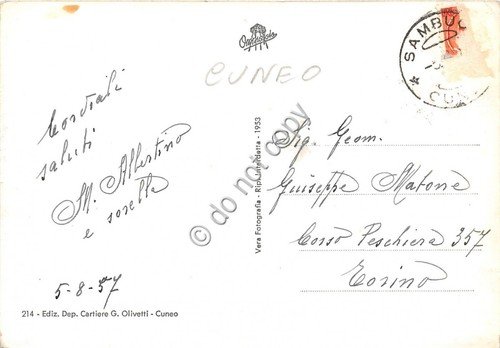 CUNEO
SAMBUC
CUN
Cordiali
saluti
M. Albertino
e sorelle
5-8-57
214 - Ediz. Dep. Cartiere G. Olivetti - Cuneo
Vera Fotografia - Ripr. Interdetta - 1953
do not copy
Sig. Geom.
Giuseppe Matone
Corso Peschiera 357
Torino